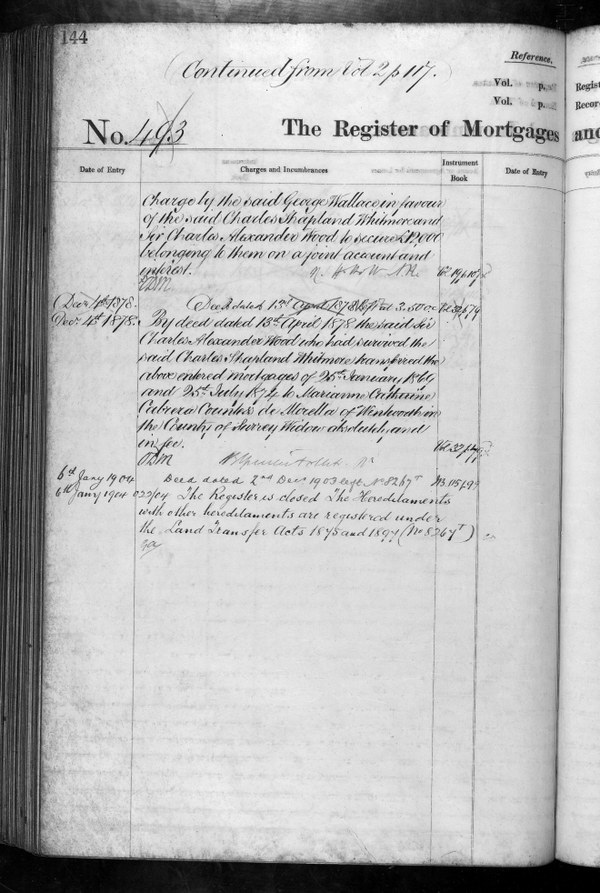 144
Reference.
(Continued from Vol 2 p 117.)
Vol. p.
Vol. p.
No. 493 The Register of Mortgages and
Regist
Recor
Date of Entry Charges and Incumbrances Instrument Book Date of Entry
Charge by the said George Wallace in favour
of the said Charles Shapland Whitmore and
Sir Charles Alexander Wood to secure £12,000
belonging to them on a joint account and
interest.
(Decr 4th 1878. Deed dated 13th April 1878
Decr 4th 1878. By deed dated 13th April 1878 the said Sir
Charles Alexander Wood who had survived the
said Charles Shapland Whitmore transferred the
above entered mortgages of 25th January 1869
and 25th July 1874 to Marianne Catherine
Cabrera Countess de Morella of Wentworth in
the County of Surrey Widow absolutely and
in fee.
6th Jany 1904 Deed dated 2nd Decr 1903 No 8267T
6th Jany 1904 The Register is closed The Hereditaments
with other hereditaments are registered under
the Land Transfer Acts 1875 and 1897 (No 8267T)